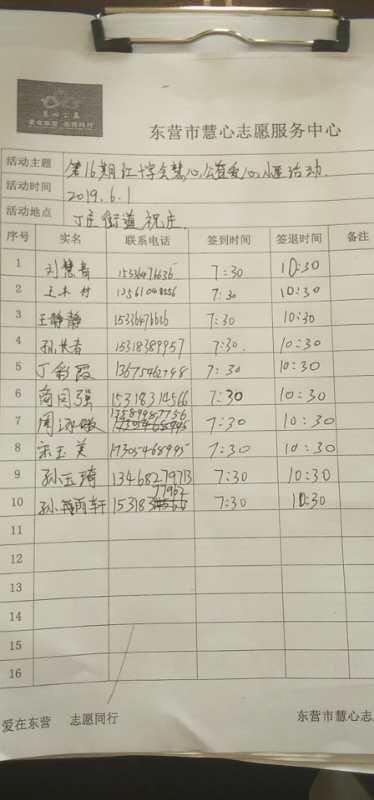 慧心公益
爱在东营 志愿同行
东营市慧心志愿服务中心
活动主题 第16期红十字会慧心公益爱心小屋活动.
活动时间 2019.6.1
活动地点 丁庄街道祝庄.
序号 实名 联系电话 签到时间 签退时间 备注
1 刘慧 7:30 10:30
2 王 7:30 10:30
3 王静静 7:30 10:30
4 孙 15318389957 7:30. 10:30
5 丁彩霞 7:30 10:30
6 商同强 15318314566 7:30 10:30
7 周 7:30 10:30
8 宋玉美 17305468995 7:30 10:30
9 孙玉琦 13468279713 7:30 10:30
10 孙雨轩 7:30 10:30
11
12
13
14
15
16
爱在东营 志愿同行 东营市慧心志愿服